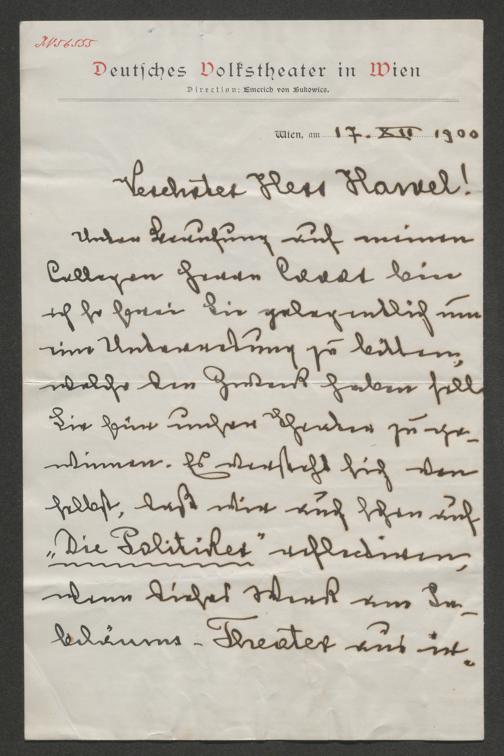 JN 56555
Deutsches Volkstheater in Wien
Direction: Emerich von Bukovics.
Wien, am 17. XII 1900
Verehrter Herr Hawel!
Unter Berufung auf meinen
Collegen Herrn
ich so frei Sie gelegentlich um
eine Unterredung zu bitten,
welche den Zweck haben soll
Sie für unser Theater zu ge-
winnen. Es versteht sich von
selbst, daß wir auch schon auf
„Die Politiker" reflectiren,
wenn dieses Werk am Ju-
biläums-Theater aus ir-